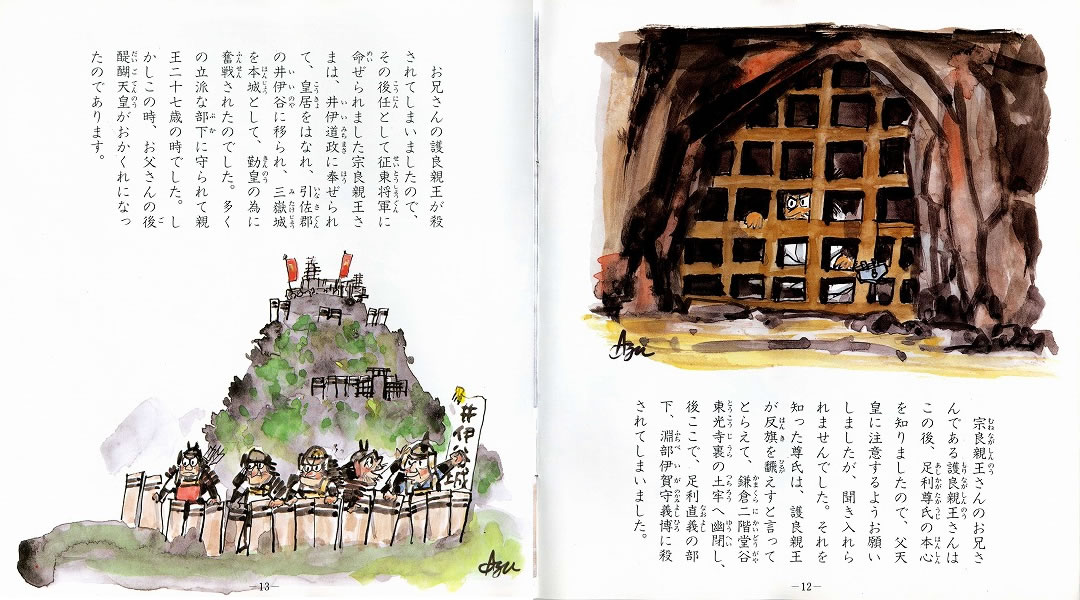 宗良親王さんのお兄さ
んである護良親王さんは
この後、足利尊氏の本心
を知りましたので、父天
皇に注意するようお願い
しましたが、聞き入れら
れませんでした。それを
知った尊氏は、護良親王
が反旗を飜えすと言って
とらえて、鎌倉二階堂谷
東光寺裏の土牢へ幽閉し、
後ここで、足利直義の部
下、淵部伊賀守義博に殺
されてしまいました。
Azu
—12—
お兄さんの護良親王が殺
されてしまいましたので、
その後任として征東将軍に
命ぜられました宗良親王さ
まは、井伊道政に奉ぜられ
て、皇居をはなれ、引佐郡
の井伊谷に移られ、三嶽城
を本城として、勤皇の為に
奮戦されたのでした。多く
の立派な部下に守られて親
王二十七歳の時でした。し
かしこの時、お父さんの後
醍醐天皇がおかくれになっ
たのであります。
井伊谷城
Azu
—13—